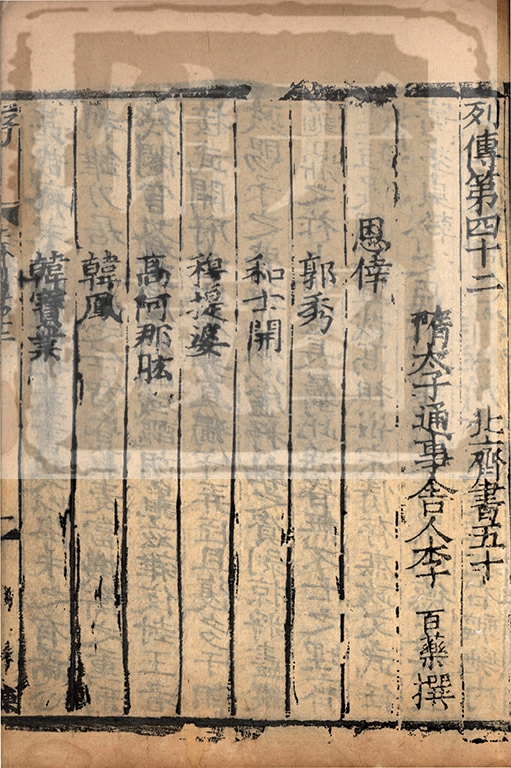 列傳第四十二　北齊書五十
隋太子通事舍人李　百藥撰
恩倖
郭秀
和士開
穆提婆
高阿那肱
韓鳳
韓寶業